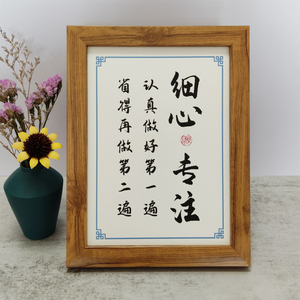 细心 专注
认真做好第一遍
省得再做第二遍